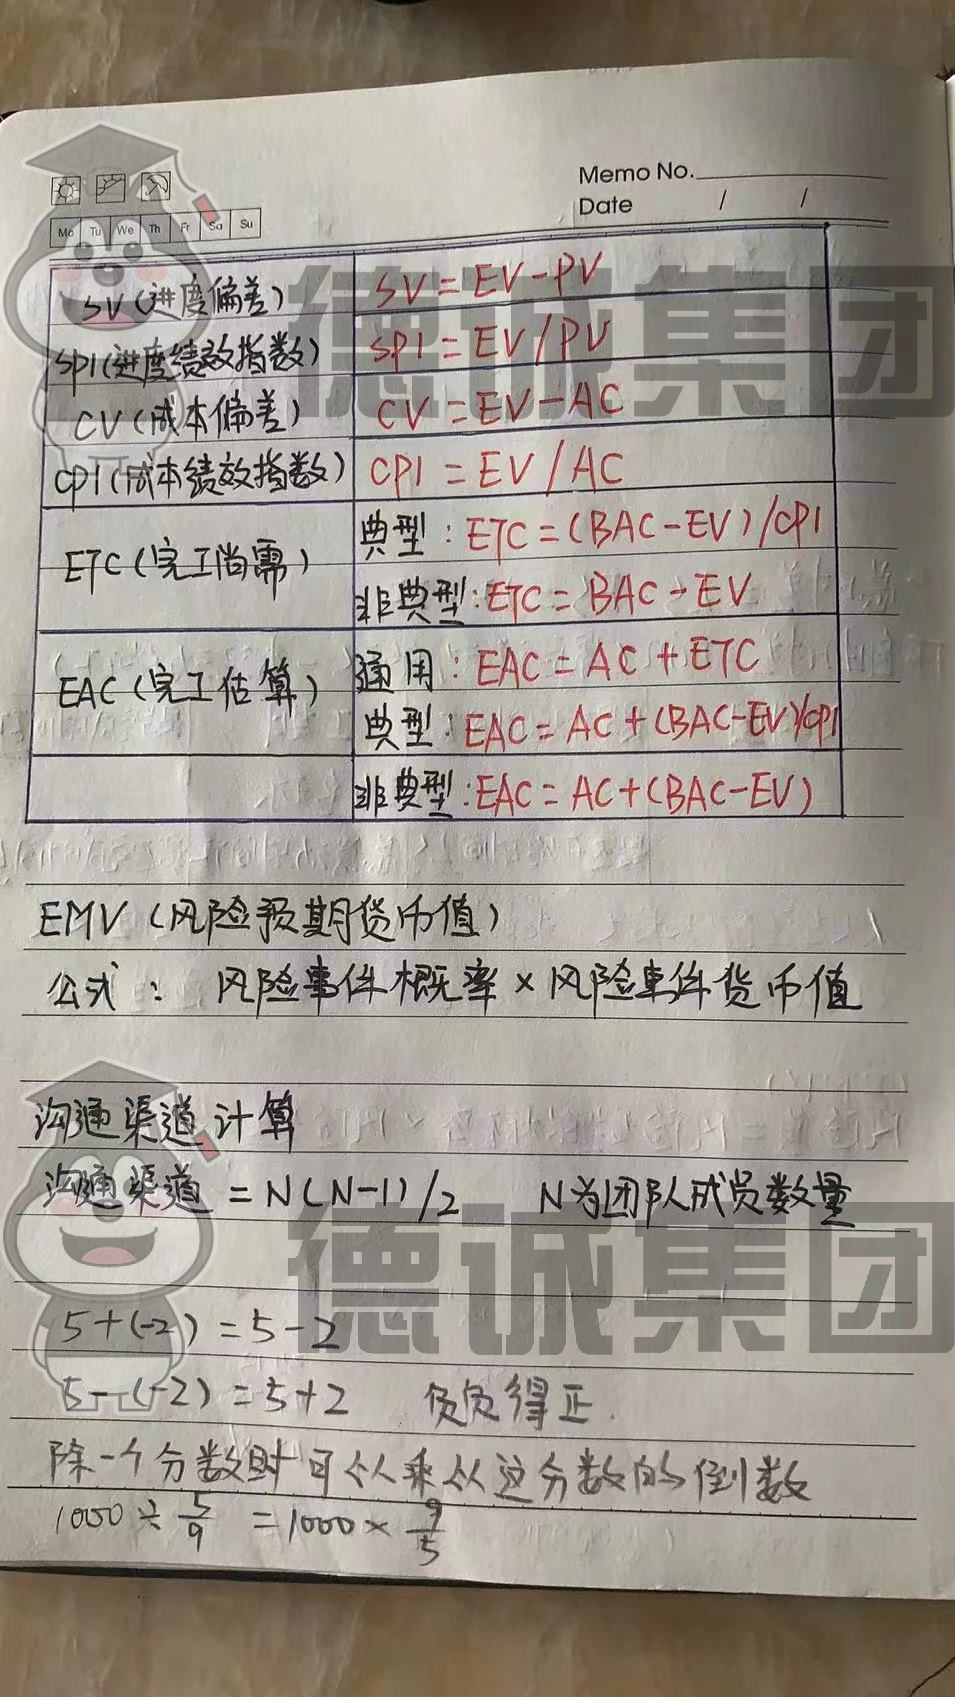 Memo No.
Date / /
Mo Tu We Th Fr Sa Su
SV(进度偏差) SV=EV-PV
SPI(进度绩效指数) SPI=EV/PV
CV(成本偏差) CV=EV-AC
CPI(成本绩效指数) CPI=EV/AC
ETC(完工尚需) 典型:ETC=(BAC-EV)/CPI
非典型:ETC=BAC-EV
EAC(完工估算) 通用:EAC=AC+ETC
典型:EAC=AC+(BAC-EV)/CPI
非典型:EAC=AC+(BAC-EV)
EMV(风险预期货币值)
公式: 风险事件概率×风险事件货币值
沟通渠道计算
沟通渠道=N(N-1)/2 N为团队成员数量
5+(-2)=5-2
5-(-2)=5+2 负负得正.
除一个分数时可以乘以这分数的倒数
1000÷5/9 =1000×9/5
德诚集团
德诚集团